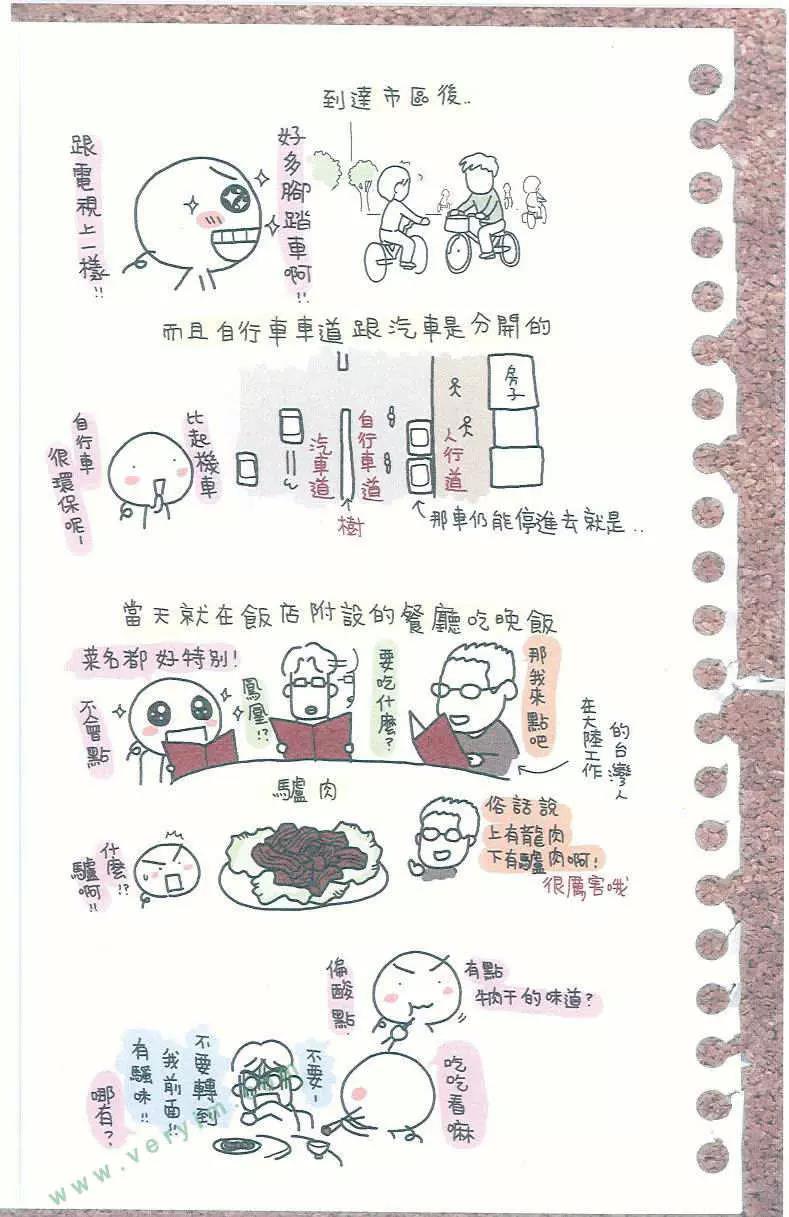 到達市區後..
好多腳踏車啊!!
跟電視上一樣!!
而且自行車車道跟汽車是分開的
比起機車
自行車
很環保呢~
汽車道
自行車道
人行道
房子
樹
那車仍能停進去就是..
當天就在飯店附設的餐廳吃晚飯
菜名都好特別!
不會點
鳳凰!?
要吃什麼?
那我來點吧
在大陸工作
的台灣人
驢肉
什麼!?
驢啊!!
俗話說
上有龍肉
下有驢肉啊!
很厲害哦
有點
牛肉干的味道?
偏酸點
吃吃看嘛
不要~
不要轉到
我前面!!
有騷味!!
哪有?
www.veryim.